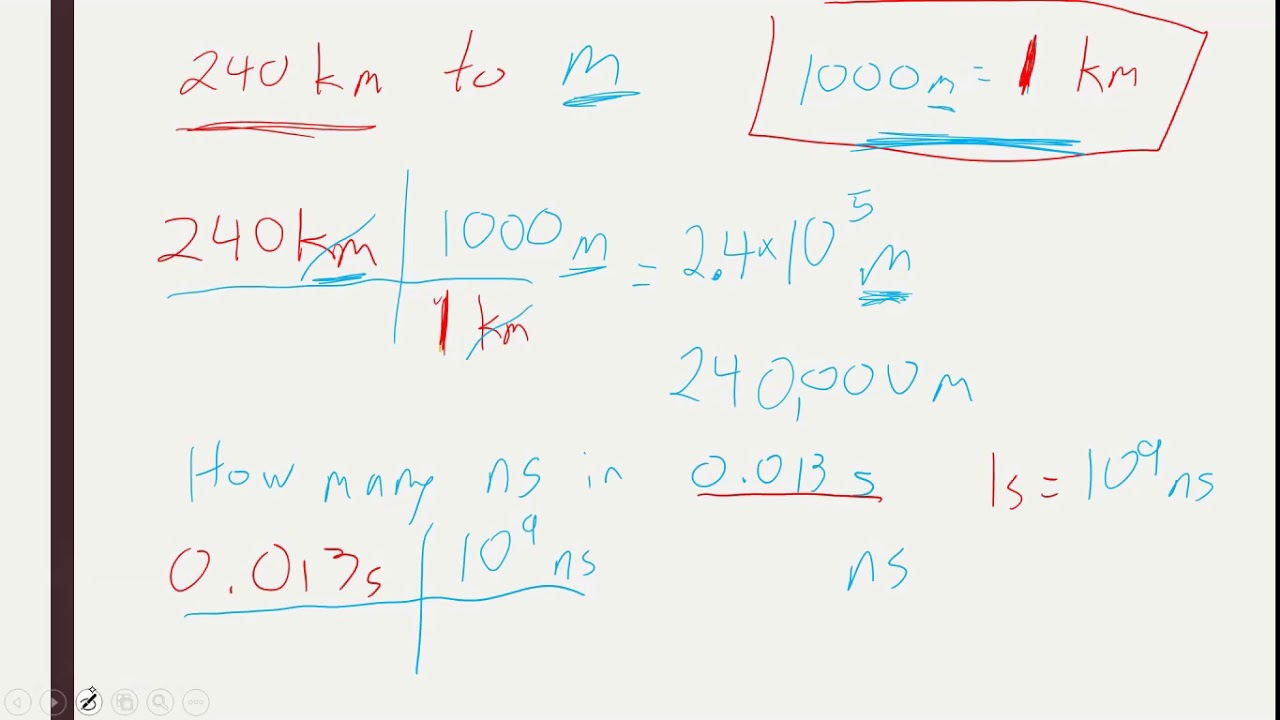 240 km to m
1000 m = 1 km
240 km | 1000 m = 2.4 × 10⁵ m
1 km
240,000 m
How many ns in 0.013 s 1s = 10⁹ ns
0.013 s | 10⁹ ns ns